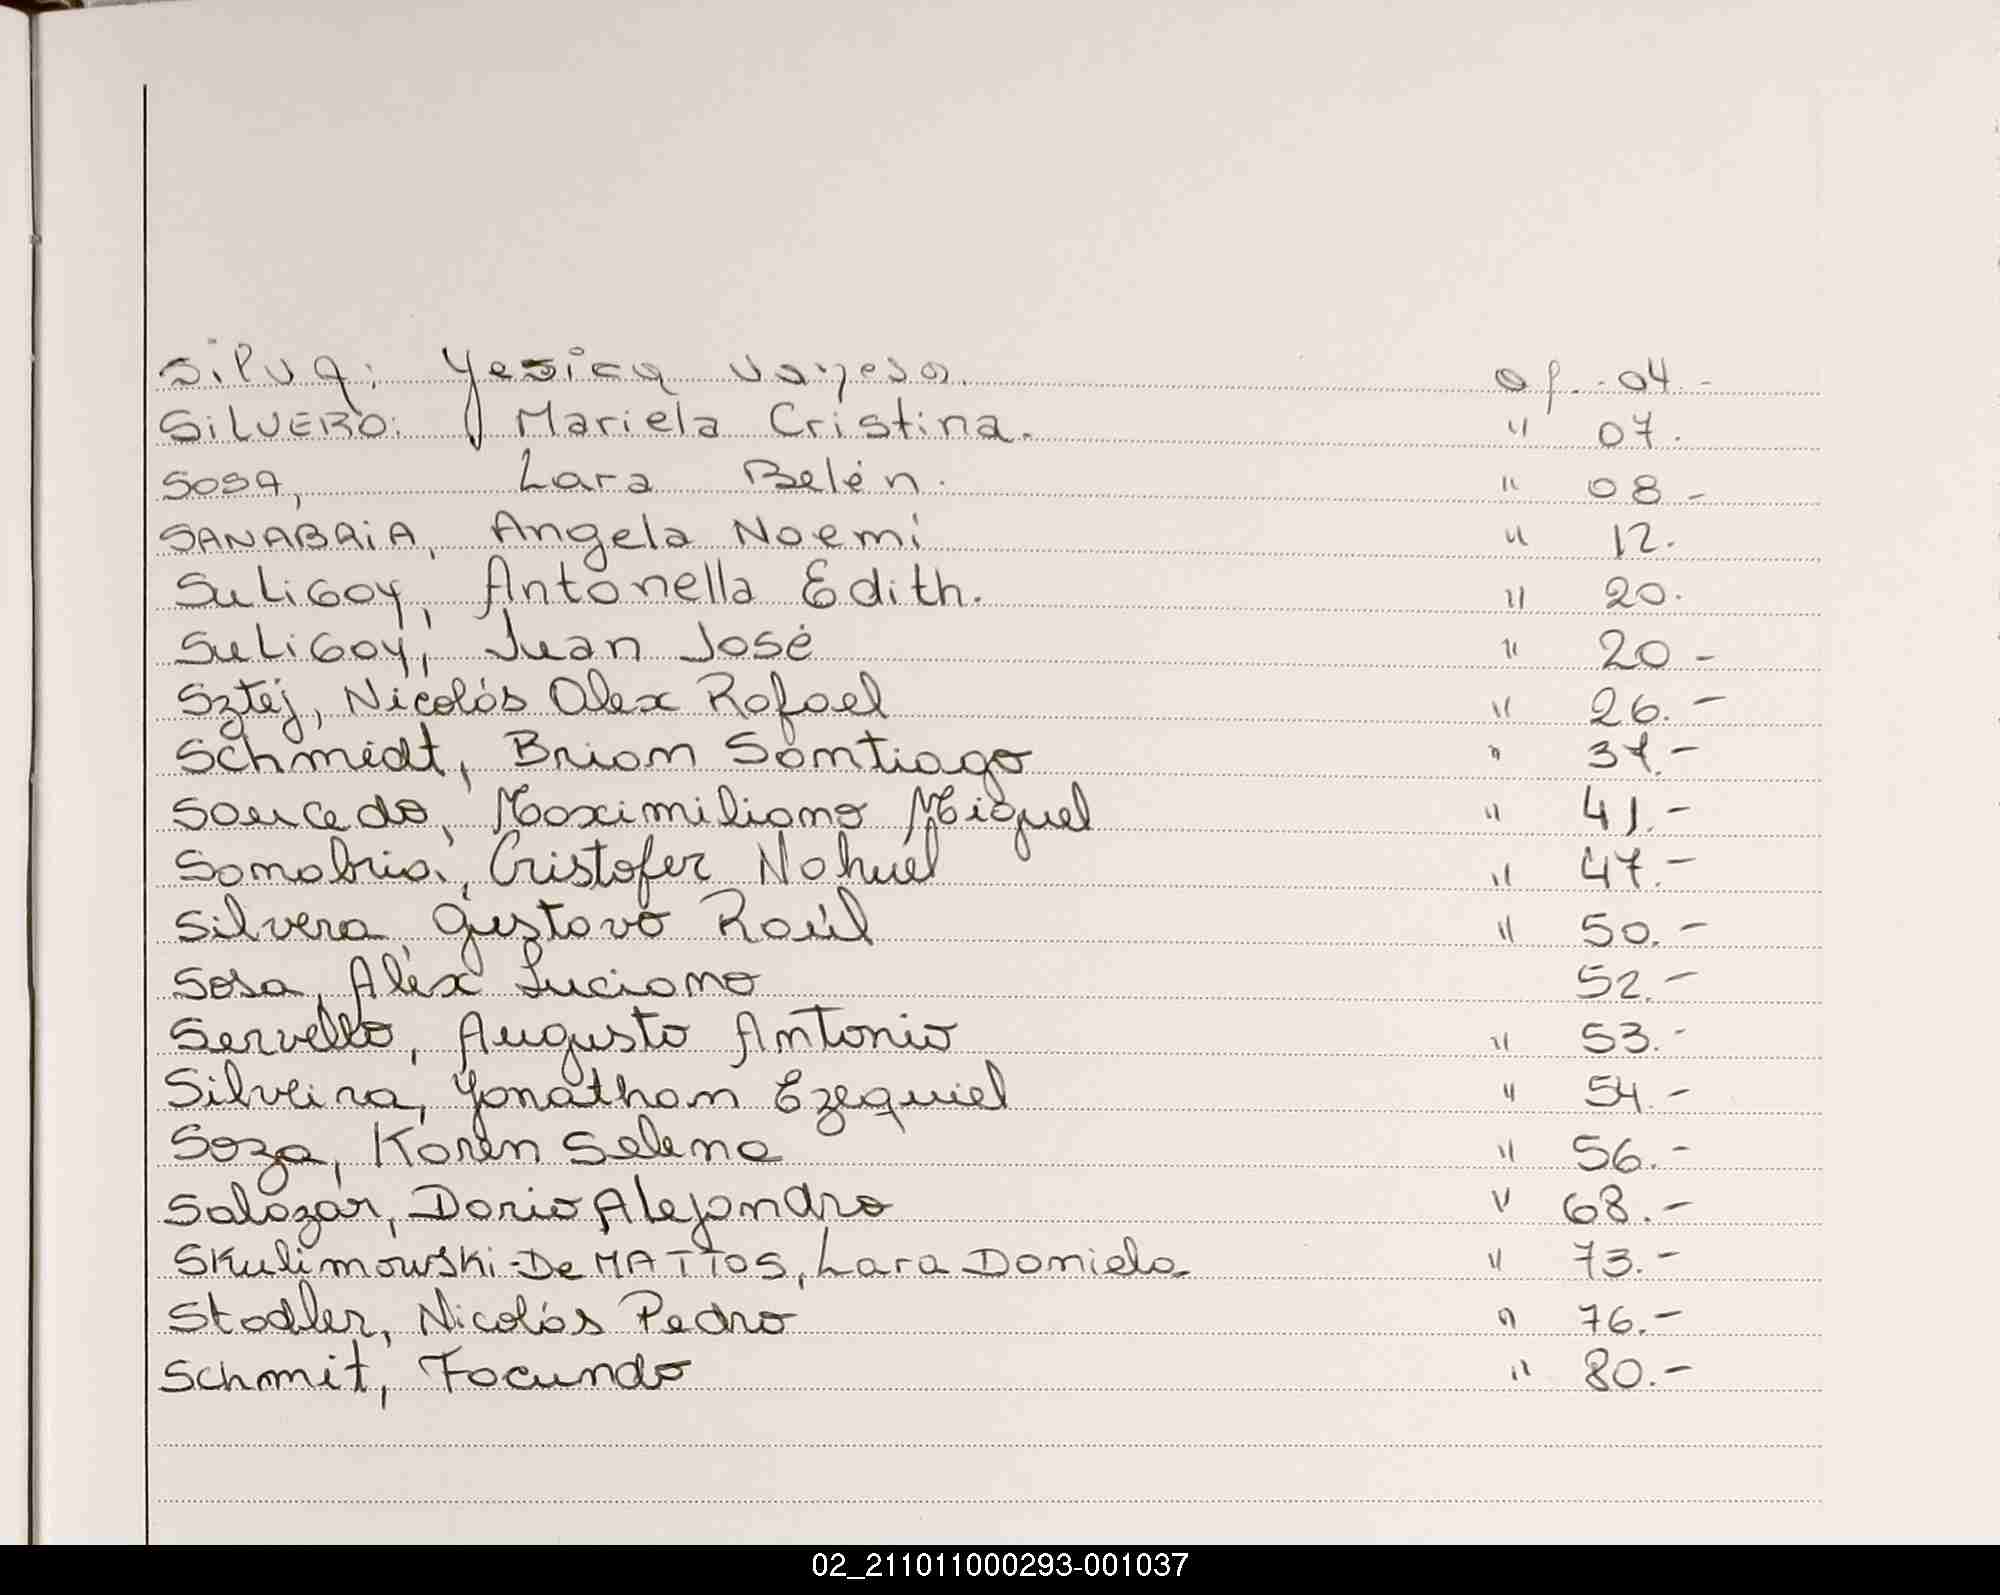 Silva; Yesica Vanesa. af. 04.-
SILVERO: Mariela Cristina. " 07.
SOSA, Lara Belén. " 08-
SANABRIA, Angela Noemí " 12.
SuLiGoy, Antonella Edith. " 20.
SuLiGoy, Juan José " 20-
Sztej, Nicolás Alex Rafael " 26.-
Schmidt, Brian Santiago " 37.-
Saucedo, Maximiliano Miguel " 41.-
Sanabria, Cristofer Nahuel " 47.-
Silvera, Gustavo Raúl " 50.-
Sosa, Alex Luciano 52.-
Servello, Augusto Antonio " 53.-
Silveira, Yonathan Ezequiel " 54.-
Soza, Karen Selena " 56.-
Salazar, Dario Alejandro " 68.-
Skulimowski-De MATTOS, Lara Daniela " 73.-
Stadler, Nicolás Pedro " 76.-
Schmit, Facundo " 80.-
02_211011000293-001037